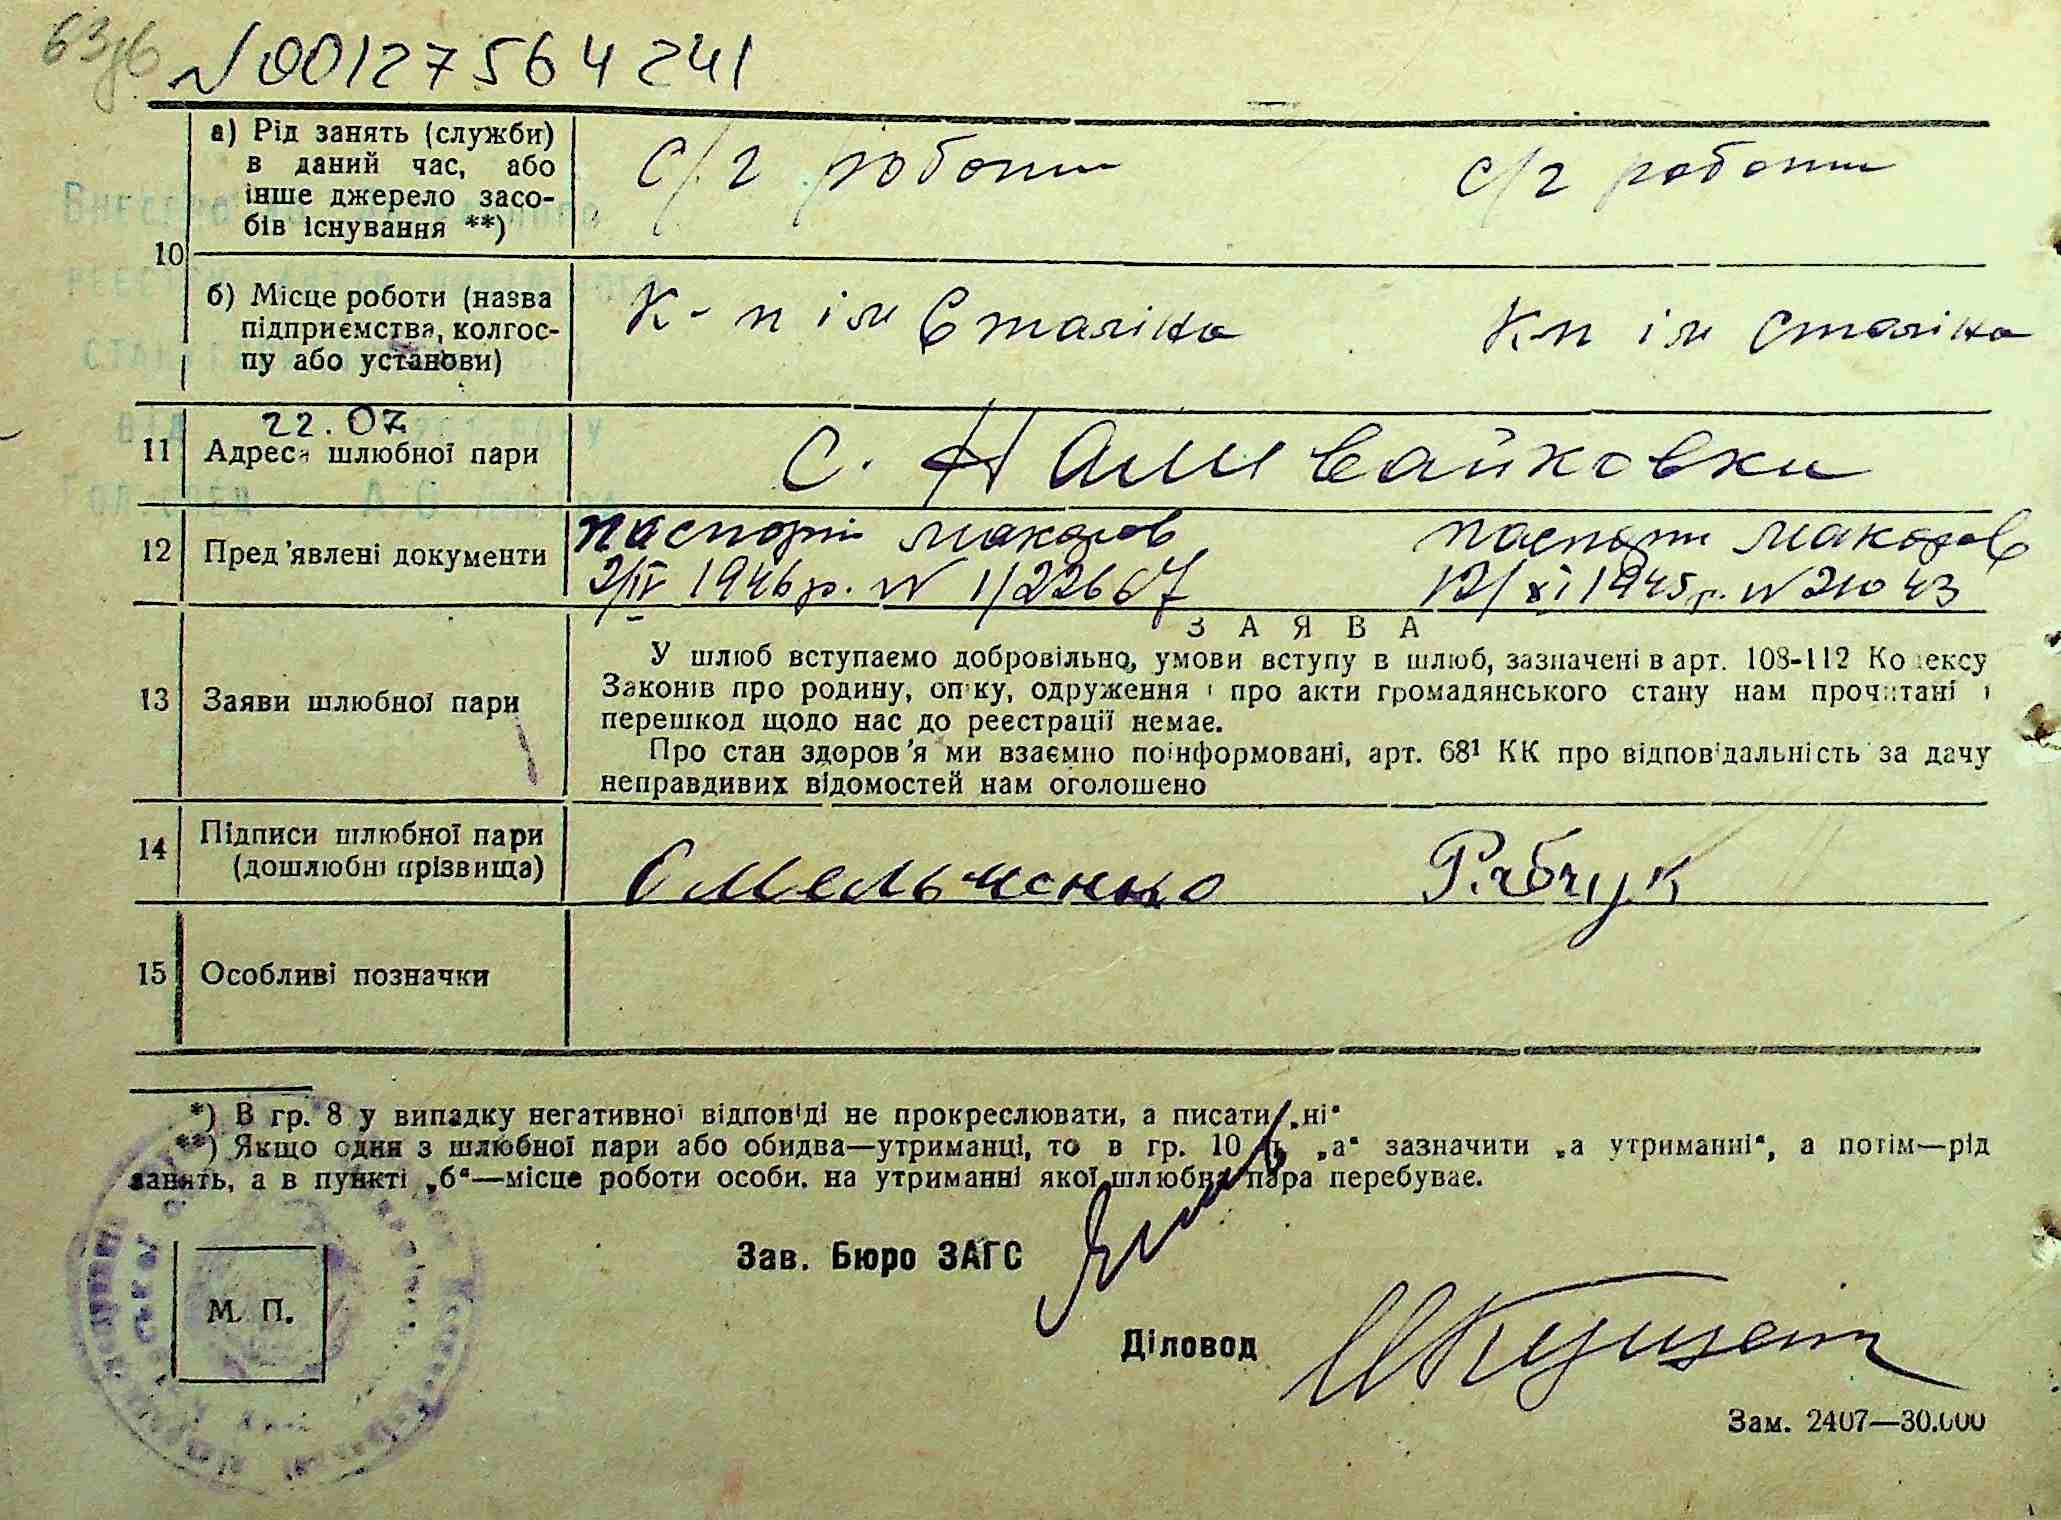 N 00127564241
а) Рід занять (служби) в даний час, або інше джерело засобів існування **)
с/г роботи с/г роботи
10
б) Місце роботи (назва підприємства, колгоспу або установи)
К-п ім Сталіна Кп ім Сталіна
22.07
11 Адреса шлюбної пари с. Наливайковка
12 Пред'явлені документи
паспорт Макаров паспорт Макаров
2/IV 1946 р. N 1/22667 12/XI 1945 р. N 21043
ЗАЯВА
13 Заяви шлюбної пари
У шлюб вступаємо добровільно, умови вступу в шлюб, зазначені в арт. 108-112 Кодексу
Законів про родину, опіку, одруження і про акти громадянського стану нам прочитані і
перешкод щодо нас до реєстрації немає.
Про стан здоров'я ми взаємно поінформовані, арт. 68¹ КК про відповідальність за дачу
неправдивих відомостей нам оголошено
14 Підписи шлюбної пари
(дошлюбні прізвища)
Омельченко Рябчук
15 Особливі позначки
*) В гр. 8 у випадку негативної відповіді не прокреслювати, а писати „ні“
**) Якщо один з шлюбної пари або обидва—утриманці, то в гр. 10 п. „а“ зазначити „а утриманні“, а потім—рід
занять, а в пункті „б“—місце роботи особи, на утриманні якої шлюбна пара перебуває.
Зав. Бюро ЗАГС
М. П.
Діловод
Зам. 2407—30.000